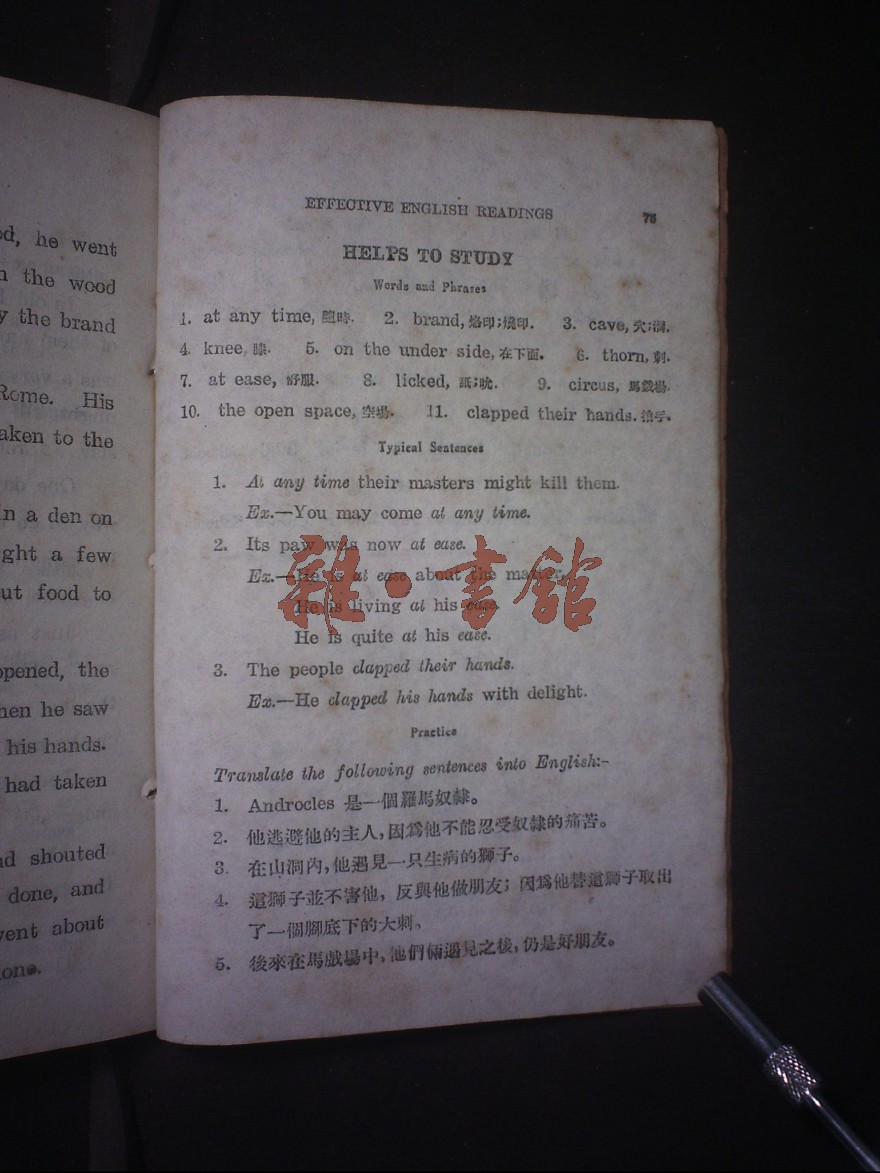 od, he went
n the wood
y the brand
Rome. His
aken to the
in a den on
ght a few
ut food to
opened, the
hen he saw
his hands.
had taken
nd shouted
done, and
went about
ione.
EFFECTIVE ENGLISH READINGS 75
HELPS TO STUDY
Words and Phrases
1. at any time, 隨時. 2. brand, 烙印;燒印. 3. cave, 穴;洞.
4. knee, 膝. 5. on the under side, 在下面. 6. thorn, 刺.
7. at ease, 舒服. 8. licked, 舐;吮. 9. circus, 馬戲場.
10. the open space, 空場. 11. clapped their hands. 拍手.
Typical Sentences
1. At any time their masters might kill them.
Ex.—You may come at any time.
2. Its paw was now at ease.
Ex.—He is at ease about the matter.
He is living at his ease.
He is quite at his ease.
3. The people clapped their hands.
Ex.—He clapped his hands with delight.
Practice
Translate the following sentences into English:-
1. Androcles 是一個羅馬奴隸。
2. 他逃避他的主人,因爲他不能忍受奴隸的痛苦。
3. 在山洞內,他遇見一只生病的獅子。
4. 這獅子並不害他, 反與他做朋友; 因爲他替這獅子取出
了一個腳底下的大刺。
5. 後來在馬戲場中,他們倆遇見之後,仍是好朋友。
雜·書館